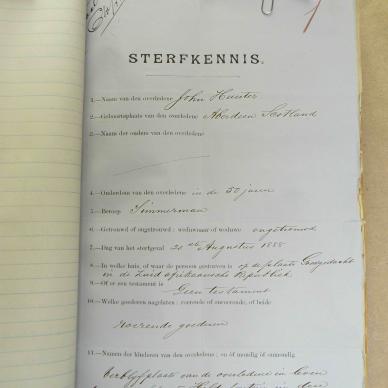 STERFKENNIS.
1.—Naam van den overledene John Hunter
2.—Geboorteplaats van den overledene Aberdeen Scotland
3.—Namen der ouders van den overledene
4.—Ouderdom van den overledene in de 50 jaren
5.—Beroep Timmerman
6.—Getrouwd of ongetrouwd; weduwnaar of weduwe ongetrouwd
7.—Dag van het sterfgeval Augustus 1888
8.—In welke huis, of waar de persoon gestorven is op de plaats Goedgedacht
in de Zuid Afrikaansche Republiek
9.—Of er een testament is Geen testament
10.—Welke goederen nagelaten; roerende of onroerende, of beide
roerende goederen
11.—Namen der kinderen van den overledene; en óf mondig óf onmondig
verblyfplaats van de overledene in leven